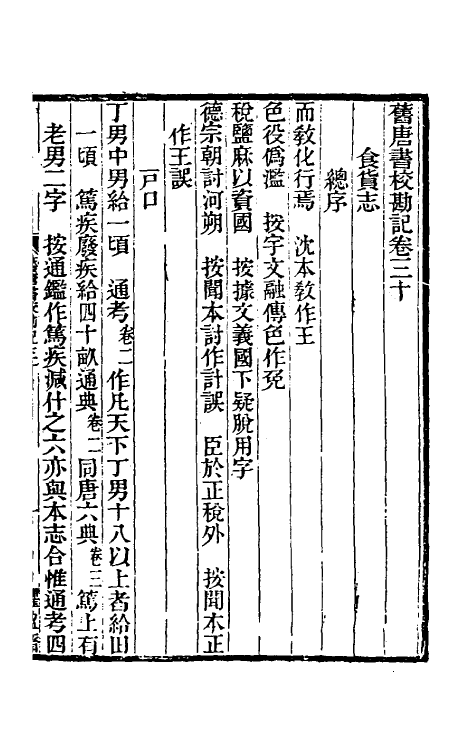 舊唐書校勘記卷三十
食貨志
總序
而敎化行焉　沈本敎作王
色役僞濫　按宇文融傳色作免
稅鹽麻以資國　按據文義國下疑脫用字
德宗朝討河朔　按聞本討作計誤　臣於正稅外　按聞本正
作王誤
戸口
丁男中男給一頃　通考卷二作凡天下丁男十八以上者給田
一頃　篤疾廢疾給四十畝通典卷二同唐六典卷三篤上有
老男二字　按通鑑作篤疾減什之六亦與本志合惟通考四